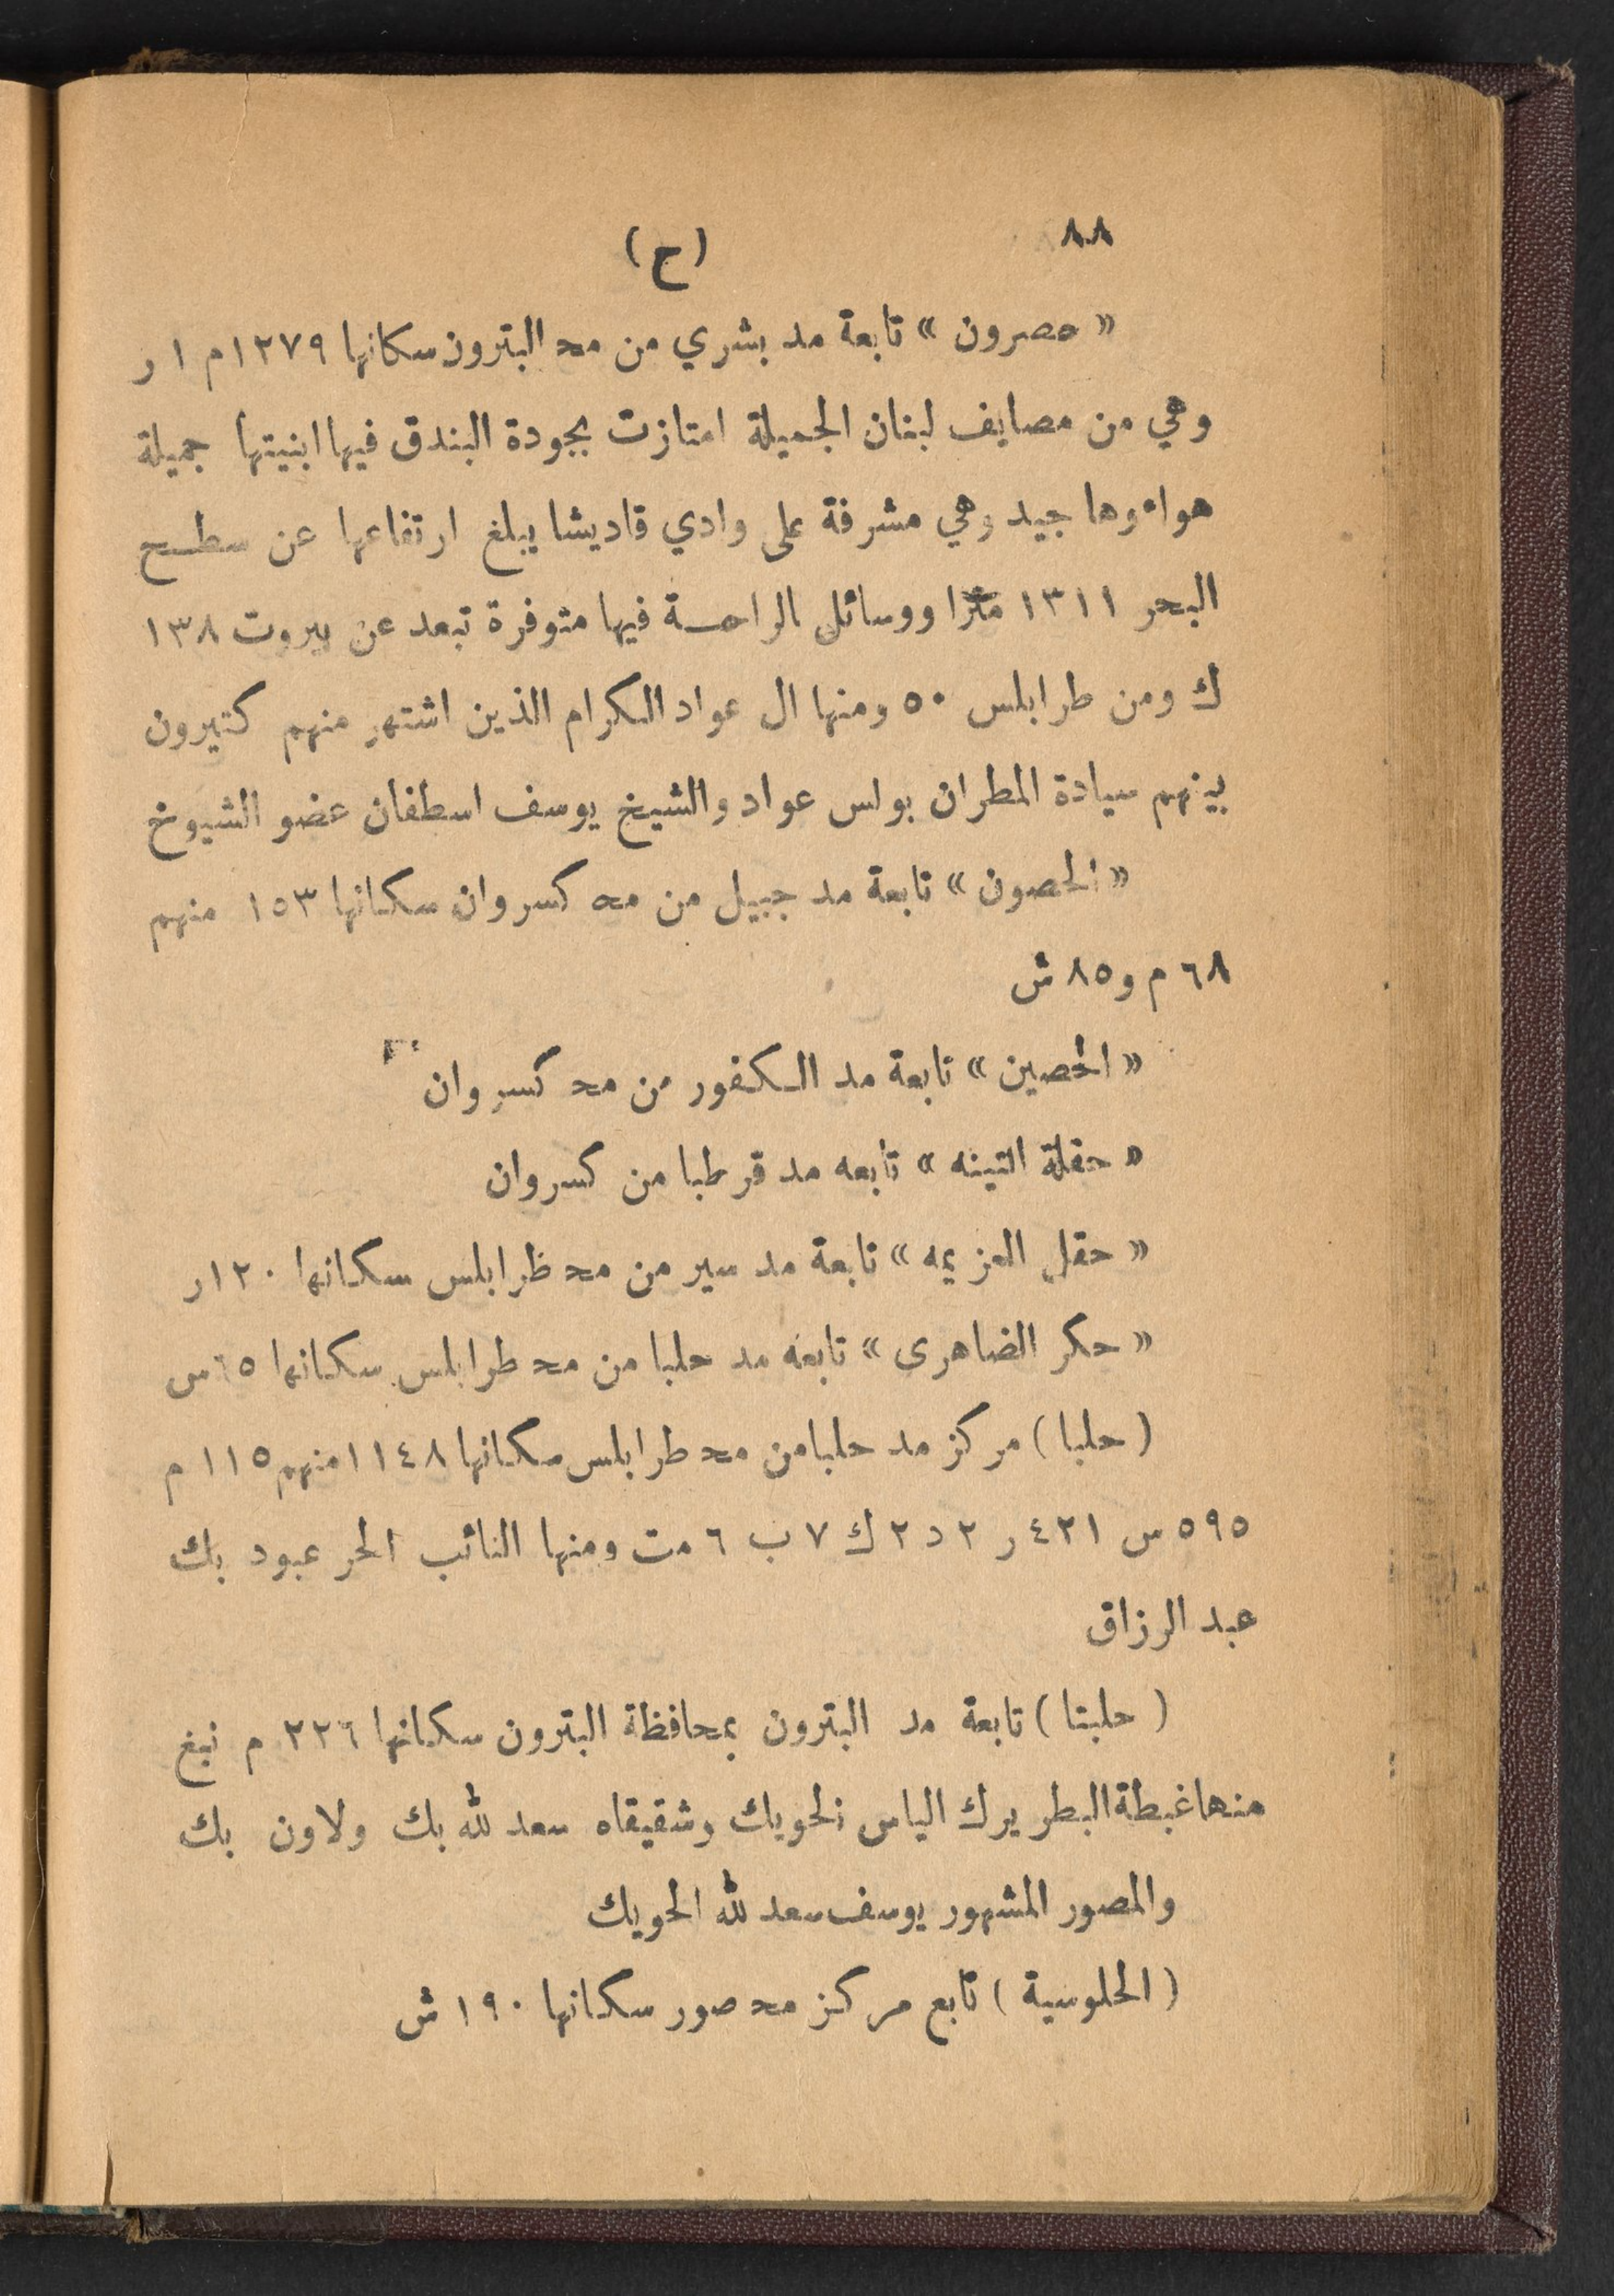 ٨٨
(ح)
« حصرون » تابعة مد بشري من محـ البترون سكانها ١٢٧٩م ١ ر
وهي من مصايف لبنان الجميلة امتازت بجودة البندق فيها ابنيتها جميلة
هواءوها جيد وهي مشرفة على وادي قاديشا يبلغ ارتفاعها عن سطح
البحر ١٣١١ مترا ووسائل الراحة فيها متوفرة تبعد عن بيروت ١٣٨
ك ومن طرابلس ٥٠ ومنها ال عواد الكرام الذين اشتهر منهم كثيرون
بينهم سيادة المطران بولس عواد والشيخ يوسف اسطفان عضو الشيوخ
« الحصون » تابعة مد جبيل من محـ كسروان سكانها ١٥٣ منهم
٦٨ م و٨٥ ش
« الحصين » تابعة مد الكفور من محـ كسروان
« حقلة التينه » تابعه مد قرطبا من كسروان
« حقل العزيمه » تابعة مد سير من محـ ظرابلس سكانها ١٢٠ر
« حكر الضاهرى » تابعه مد حلبا من محـ طرابلس سكانها ٦٥س
( حلبا ) مركز مد حلبا من محـ طرابلس سكانها ١١٤٨منهم ١١٥ م
٥٩٥ س ٤٢١ ر ٢ د ٢ ك ٧ ب ٦ مت ومنها النائب الحر عبود بك
عبد الرزاق
( حلبتا ) تابعة مد البترون بمحافظة البترون سكانها ٢٢٦ م نبغ
منها غبطة البطريرك الياس الحويك وشقيقاه سعدلله بك ولاون بك
والمصور المشهور يوسف سعدلله الحويك
( الحلوسية ) تابع مركز محـ صور سكانها ١٩٠ ش